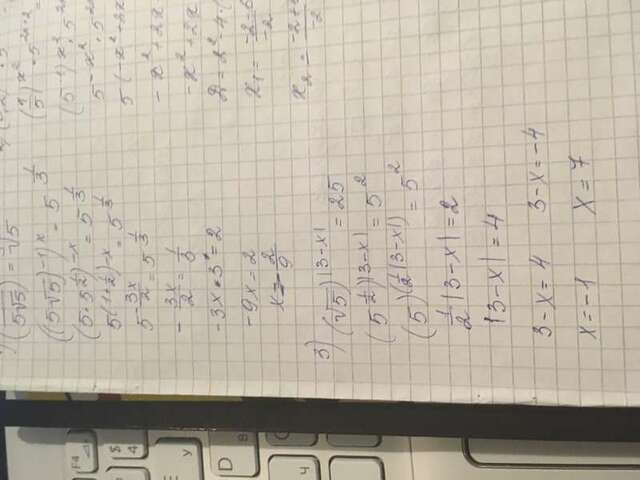 (1/(5√5))^x = ∛5
((5√5)^-1)^x = 5^(1/3)
(5·5^(1/2))^-x = 5^(1/3)
5^((1+1/2)·-x) = 5^(1/3)
5^(-3x/2) = 5^(1/3)
-3x/2 = 1/3
-3x·3 = 2
-9x = 2
x = -2/9
3) (√5)^|3-x| = 25
(5^(1/2))^|3-x| = 5^2
(5)^(1/2|3-x|) = 5^2
1/2|3-x| = 2
|3-x| = 4
3-x=4 3-x=-4
x=-1 x=7
(1/5)^x^2 · 5^2x+2 =
(5^-1)^x^2 · 5^2x
5^-x^2 · 5^2x
5(-x^2+2x
-x^2+2x
-x^2+2x
D=2^2-4·(
x₁ = -2-6/-2
x₂ = -2+6/-2
F4
$
4
E
У
D
В
Ч